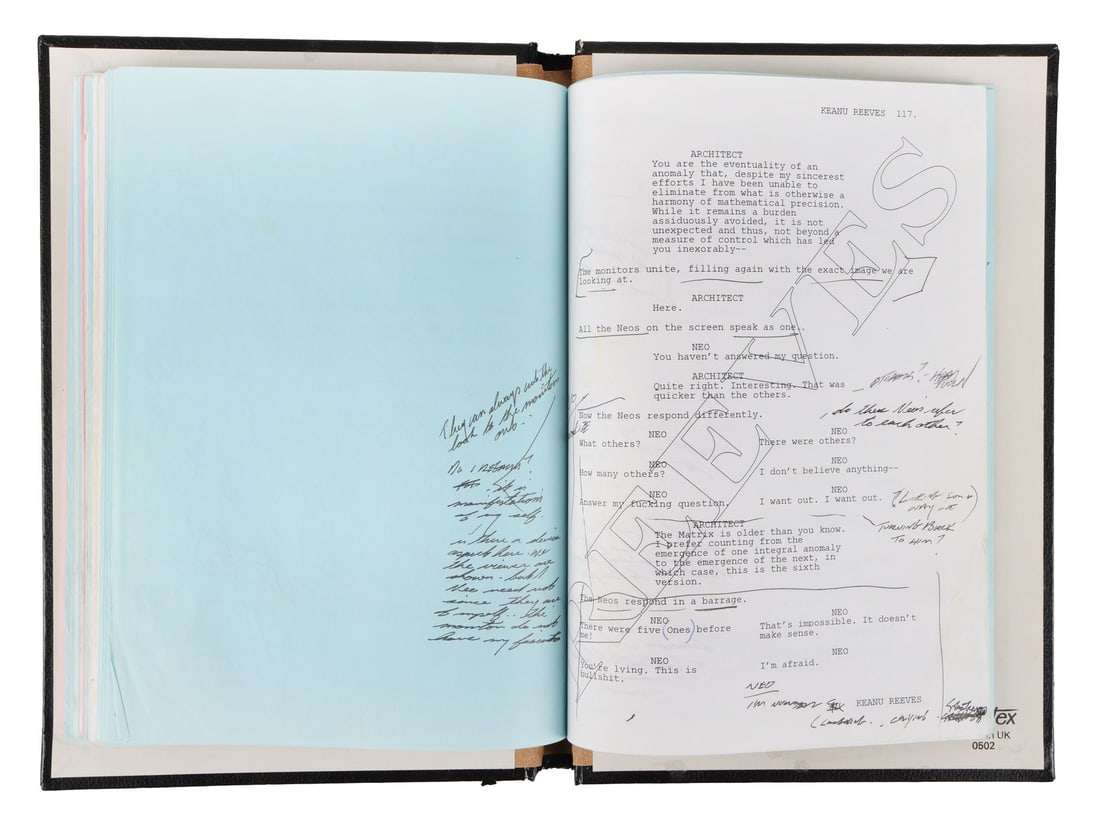 They can always cut the
look to the monitors
ours.
Do I REALLY?
it is
manifestations
of my self.
is there a
aspect here. we
the viewer are
shown - but I
Neo need not
since they are
of myself... The
monitors do not
have my
KEANU REEVES 117.
ARCHITECT
You are the eventuality of an
anomaly that, despite my sincerest
efforts I have been unable to
eliminate from what is otherwise a
harmony of mathematical precision.
While it remains a burden
assiduously avoided, it is not
unexpected and thus, not beyond a
measure of control which has led
you inexorably--
The monitors unite, filling again with the exact image we are
looking at.
ARCHITECT
Here.
All the Neos on the screen speak as one..
NEO
You haven't answered my question.
ARCHITECT
Quite right. Interesting. That was
quicker than the others.
OTHERS? - HEAD
TURN
Now the Neos respond differently.
do these Neo's refer
to each other?
NEO NEO
What others? There were others?
NEO NEO
How many others? I don't believe anything--
NEO NEO
Answer my fucking question. I want out. I want out.
TURNING BACK
TO HIM?
ARCHITECT
The Matrix is older than you know.
I prefer counting from the
emergence of one integral anomaly
to the emergence of the next, in
which case, this is the sixth
version.
The Neos respond in a barrage.
NEO NEO
There were five (Ones) before That's impossible. It doesn't
me! make sense.
NEO NEO
You're lying. This is I'm afraid.
bullshit.
NEO
I'm NUMBER SIX KEANU REEVES
crying
REEVES
ex
UK
0502